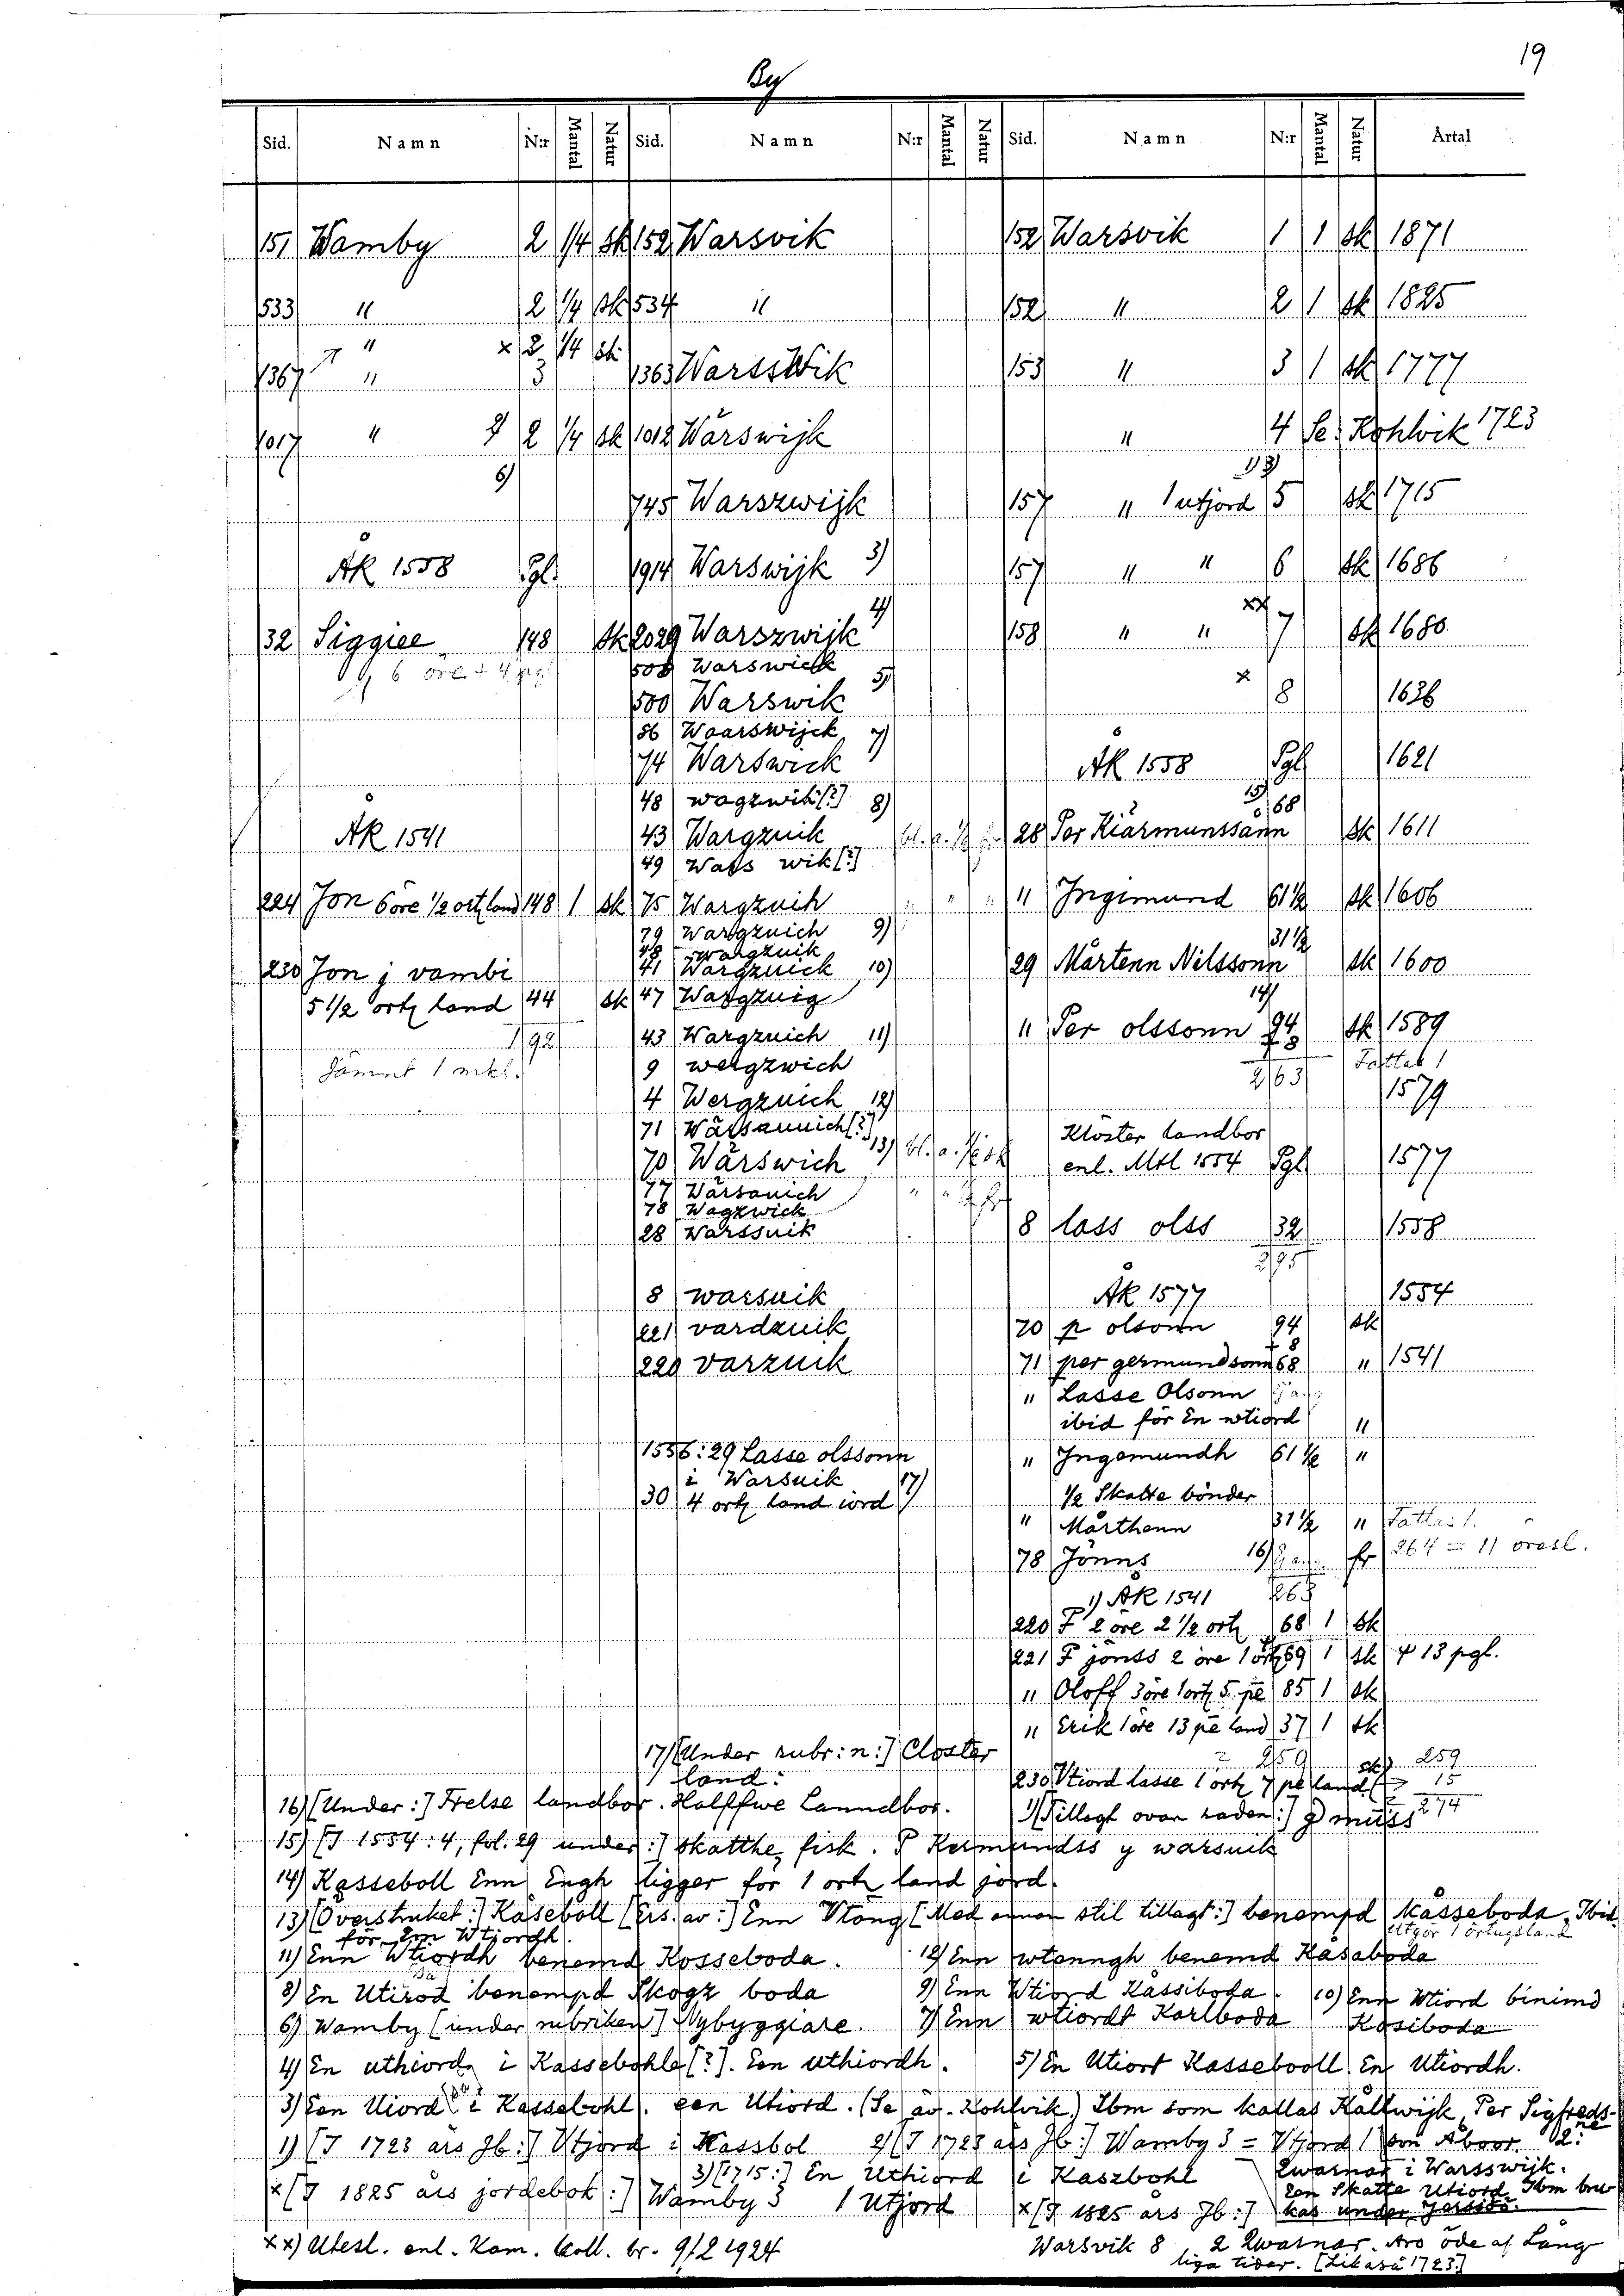 19
By
Sid. Namn N:r Mantal Natur Sid. Namn N:r Mantal Natur Sid. Namn N:r Mantal Natur Årtal
151 Wamby 2 1/4 sk 152 Warsvik 152 Warsvik 1 1 sk 1871
533 " 2 1/4 sk 534 " 152 " 2 1 sk 1825
" x 2 1/4 sk
1367 " 3 1363 WarssWik 153 " 3 1 sk 1777
1017 " 2 1/4 sk 1012 Wårswijk " 4 Se: Kohlvik 1723
6) 745 Warszwijk 157 " 1 utjord 5 sk 1715
ÅK 1558 Pgl. 1914 Warswijk 3) 157 " " 6 sk 1686
32 Siggiee 148 sk 2029 Warszwijk 4) 158 " " xx 7 sk 1680
508 Warswick
500 Warswik 5) x 8 1636
86 Waarswijck 7)
74 Warswick ÅK 1558 Pgl 1621
48 wagzwik [?] 8) 15)
ÅK 1541 43 Wargzuik 28 Per Kiärmunssånn 68 sk 1611
49 Wass wik [?]
224 Jon 6 öre 1/2 ortz land 148 1 sk 75 Wargzuih " Ingimund 61 1/2 sk 1606
79 Wargzuich 9)
48 wargzuik
230 Jon j vambi 41 Wargzuick 10) 29 Mårtenn Nilssonn 31 1/2 sk 1600
5 1/2 ortz land 44 sk 47 Wargzuig 14)
192 43 Wargzuich 11) " Per olssonn 94 + 8 sk 1589
Jämnt 1 mkl. 9 wergzwich 263 Fattas 1
4 Wergzuich 12) 1579
71 Wårsauuich [?] Klöster landbor
70 Wårswich 13) enl. Mtl 1554 Pgl 1577
77 Wårsauich
78 Wagzwick
28 Warssuik 8 lass olss 32 1558
295
8 warsuik ÅK 1577 1554
221 vardzuik 70 p olsonn 94 + 8 sk
220 varzuik 71 per germundsonn 68 " 1541
" Lasse Olsonn
ibid för En wtiord "
1556: 29 Lasse olssonn " Ingemundh 61 1/2 "
i Warsuik 17) 1/2 Skatte bönder
30 4 ortz land iord " Mårthenn 31 1/2 " Fattas 1.
78 Jönns 16) fr 264 = 11 öresl.
1) ÅK 1541 263
220 P 2 öre 2 1/2 ortz 68 1 sk
221 P jönss 2 öre 1 örtz 69 1 sk + 13 pgl.
" Oloff 3 öre 1 ortz 5 pe 85 1 sk
" Erik 1 öre 13 pe land 37 1 sk
17) [Under rubr:n:] Closter 259 259
land: 230 Vtiord lasse 1 ortz 7 pe land sk 15
16) [Under:] Frelse landbor. Halffwe Lanndbor. 1) [Tillagt ovan raden:] muss 274
15) [I 1554: 4, fol. 29 under:] skatthe fisk. P Kermundss y warsuik
14) Kasseboll Enn Engh ligger för 1 ortz land jord.
13) [Överstruket:] Kåseboll [Ers. av:] Enn Vtöng [Med annan stil tillagt:] benempd kåsseboda. Ibid.
för Em Wtjordh. Utgör 1 örtugsland
11) Enn Wtiordh benemd Kosseboda. 12) Enn wtenngh benemd Kasaboda
8) En Utirod benempd Skogz boda 9) Enn Wtiord Kassiboda. 10) Enn Wtiord binimd
6) Wamby [under rubriken] Nybyggiare. 7) Enn wtiordt Karlboda Kosiboda
4) En uthiord i Kassebohle [?]. Een uthiordh. 5) En Utiort Kassebooll En Utiordh.
3) Een Uiord i Kassebohl. een Utiord. (Se äv. Kohlvik.) Ibm som kallas Kållwijk Per Sigfreds-
1) [I 1723 års Jb:] Utjord i Kassbol 2) [I 1723 års Jb:] Wamby 3 = Utjord 1 son Åboor. 2:ne
3) [1715:] En Uthiord i Kaszbohl Qwarnar i Warsswijk.
x [I 1825 års jordebok:] Wamby 3 1 Utjord Een Skatte Utiord Ibm bru
x [I 1825 års Jb:] kas under Jerssöö.
xx) Utesl. enl. Kam. koll. br. 9/2 1924 Warsvik 8 2 Qwarnar. Äro öde af Lång
liga tider. [Likaså 1723]